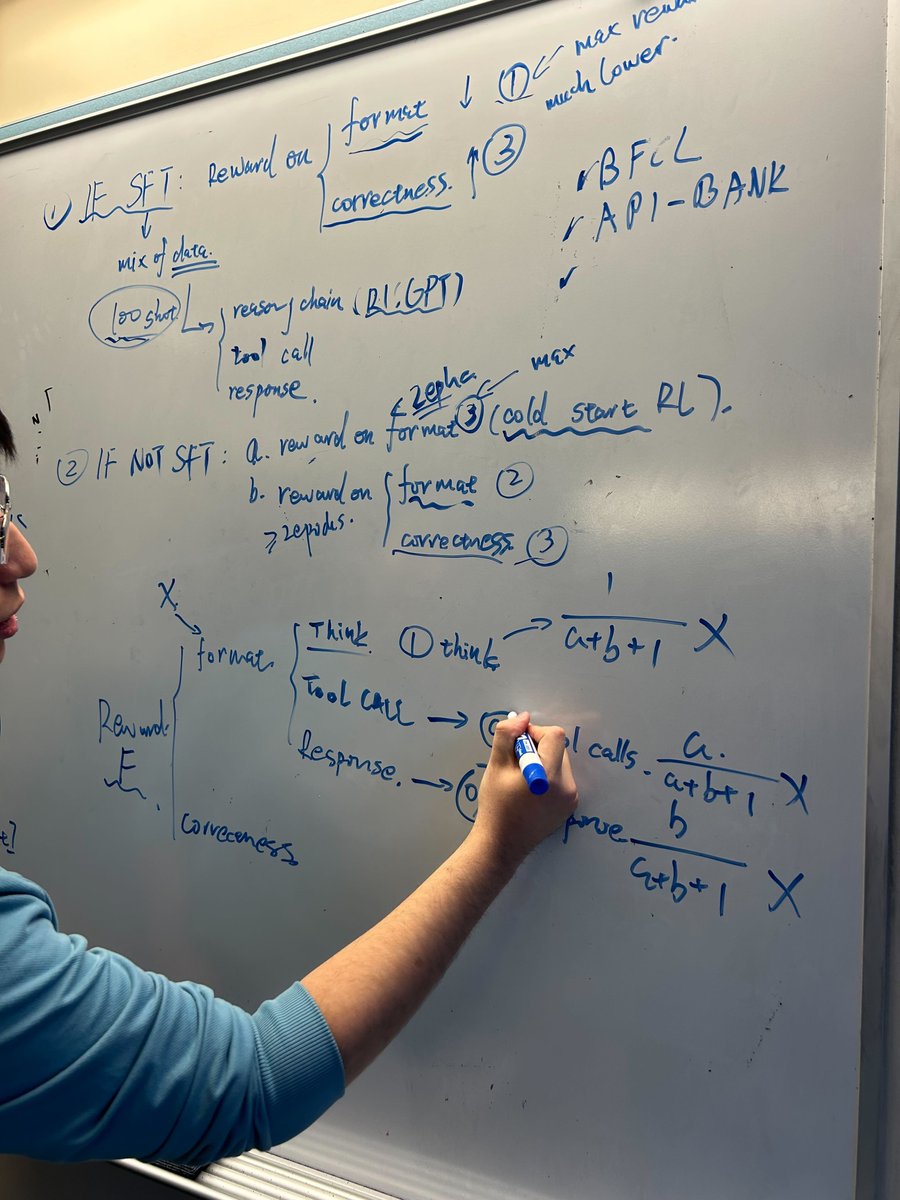 ① IF SFT: Reward on format ↓ ① ↙ max
much lower.
correctness. ↑ ③
↓
mix of data.
100 shot → reason chain (R1:GPT)
tool call
response.
✓ BFCL
✓ API-BANK
✓
② IF NOT SFT: a. reward on format ③ (cold start RL).
max
b. reward on format ②
correctness ③
X
Reward format. Think ① think → 1/(a+b+1) X
Tool CALL → calls. a./(a+b+1) X
Response. → b/(a+b+1) X
correctness